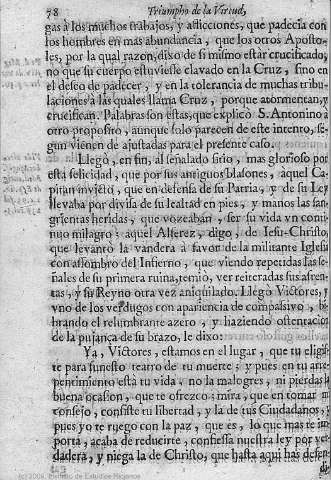 78 Triumpho de la Virtud,
gas à los muchos trabajos, y aflicciones, que padecia con
los hombres en mas abundancia, que los otros Aposto-
les, por la qual razon, dixo de si mismo estàr crucificado,
no que su cuerpo estuviesse clavado en la Cruz, sino en
el deseo de padecer, y en la tolerancia de muchas tribu-
laciones à las quales llama Cruz, porque atormentan, y
crucifican. Palabras son estas, que explicò S. Antonino à
otro proposito, aunque solo parecen de este intento, se-
gun vienen de ajustadas para el presente caso.
Llegò, en fin, al señalado sitio, mas glorioso por
esta felicidad, que por sus antiguos blasones, aquel Ca-
pitan invicto, que en defensa de su Patria, y de su Ley
llevaba por divisa de su lealtad en pies, y manos las san-
grientas heridas, que vozeabàn, ser su vida vn conti-
nuo milagro: aquel Alferez, digo, de Iesu-Christo,
que levantò la vandera à favor de la militante Iglesia
con assombro del Infierno, que viendo repetidas las se-
ñales de su primera ruina, temiò, ver reiteradas sus afren-
tas, y su Reyno otra vez aniquilado. Llegò Victores, y
vno de los verdugos con apariencia de compassivo, bi-
brando el relumbrante azero, y haziendo ostentacion
de la pujança de su brazo, le dixo:
Ya, Victores, estamos en el lugar, que tu eligis-
te para funesto teatro de tu muerte; y pues en tu arre-
pentimiento està tu vida, no la malogres, ni pierdas la
buena ocasion, que te ofrezco: mira, que en tomar mi
consejo, consiste tu libertad, y la de tus Ciudadanos;
pues yo te ruego con la paz, que es, lo que mas te im-
porta, acaba de reducirte, confiessa nuestra ley por ver-
dadera, y niega la de Christo, que hasta aqui has defen-
(c) 2006, Instituto de Estudios Riojanos